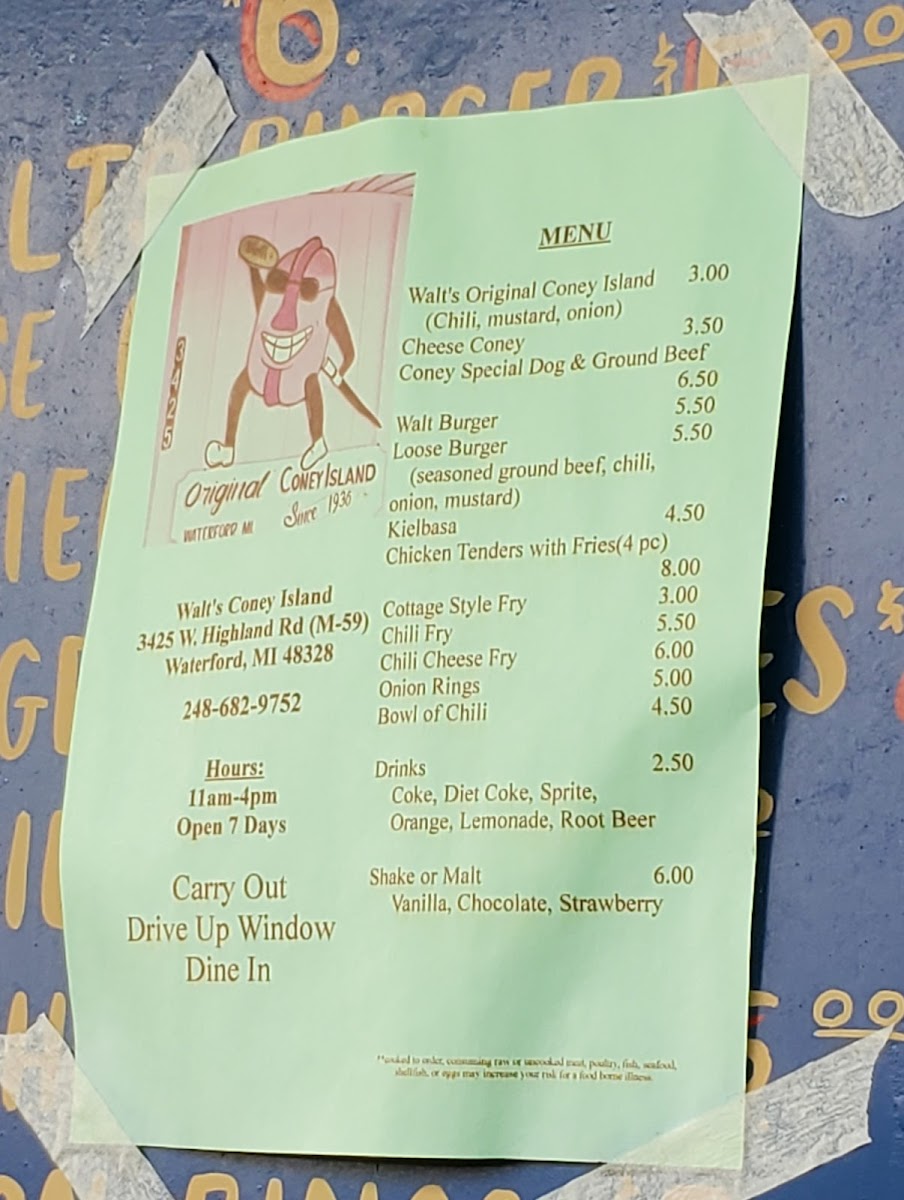 6.
BURGER $
00
MENU
Walt's Original Coney Island 3.00
(Chili, mustard, onion)
Cheese Coney 3.50
Coney Special Dog & Ground Beef
6.50
Walt Burger 5.50
Loose Burger 5.50
(seasoned ground beef, chili,
onion, mustard)
Kielbasa 4.50
Chicken Tenders with Fries(4 pc)
8.00
Cottage Style Fry 3.00
Chili Fry 5.50
Chili Cheese Fry 6.00
Onion Rings 5.00
Bowl of Chili 4.50
Drinks 2.50
Coke, Diet Coke, Sprite,
Orange, Lemonade, Root Beer
Shake or Malt 6.00
Vanilla, Chocolate, Strawberry
**cooked to order, consuming raw or uncooked meat, poultry, fish, seafood,
shellfish, or eggs may increase your risk for a food borne illness.
3425
Original CONEY ISLAND
WATERFORD MI. Since 1936
Walt's Coney Island
3425 W. Highland Rd (M-59)
Waterford, MI 48328
248-682-9752
Hours:
11am-4pm
Open 7 Days
Carry Out
Drive Up Window
Dine In
00